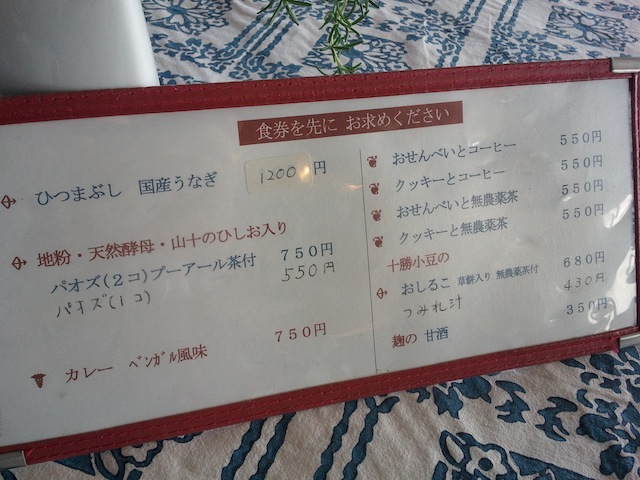 食券を先に お求めください
ひつまぶし 国産うなぎ 1200円
地粉・天然酵母・山十のひしお入り
パオズ(2コ)プーアール茶付 750円
パオズ(1コ) 550円
カレー ベンガル風味 750円
おせんべいとコーヒー 550円
クッキーとコーヒー 550円
おせんべいと無農薬茶 550円
クッキーと無農薬茶 550円
十勝小豆の
おしるこ 草餅入り 無農薬茶付 680円
つみれ汁 430円
麹の 甘酒 350円